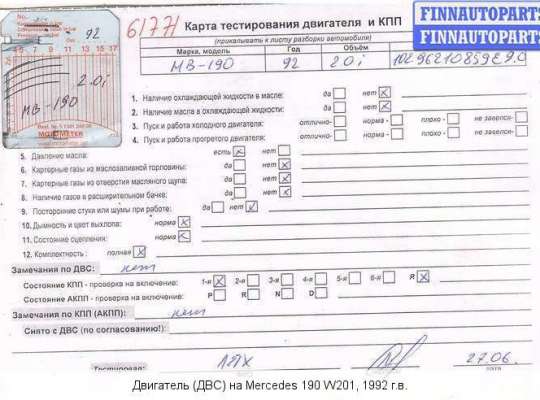 FINNAUTOPARTS
FINNAUTOPARTS
92
2.0i
MB-190
MOTOMETER
61771
Карта тестирования двигателя и КПП
(прикалывать к листу разборки автомобиля)
Марка, модель Год Объём
MB-190 92 2.0i
1. Наличие охлаждающей жидкости в масле: да нет
2. Наличие масла в охлаждающей жидкости: да нет
3. Пуск и работа холодного двигателя: отлично- норма - плохо - не завелся-
4. Пуск и работа прогретого двигателя: отлично- норма - плохо - не завелся-
5 Давление масла: есть нет
6. Картерные газы из маслозаливной горловины: да нет
7. Картерные газы из отверстия масляного щупа: да нет
8. Наличие газов в расширительном бачке: да нет
9. Посторонние стуки или шумы при работе: да нет
10. Дымность и цвет выхлопа: норма
11. Состояние сцепления: норма
12. Комплектность: полная
Замечания по ДВС: нет
Состояние КПП - проверка на включение: 1-я 2-я 3-я 4-я 5-я 6-я R
Состояние АКПП - проверка на включение: P R N D
Замечания по КПП (АКПП): нет
Снято с ДВС (по согласованию!):
Тестировал: 27.06.
Двигатель (ДВС) на Mercedes 190 W201, 1992 г.в.